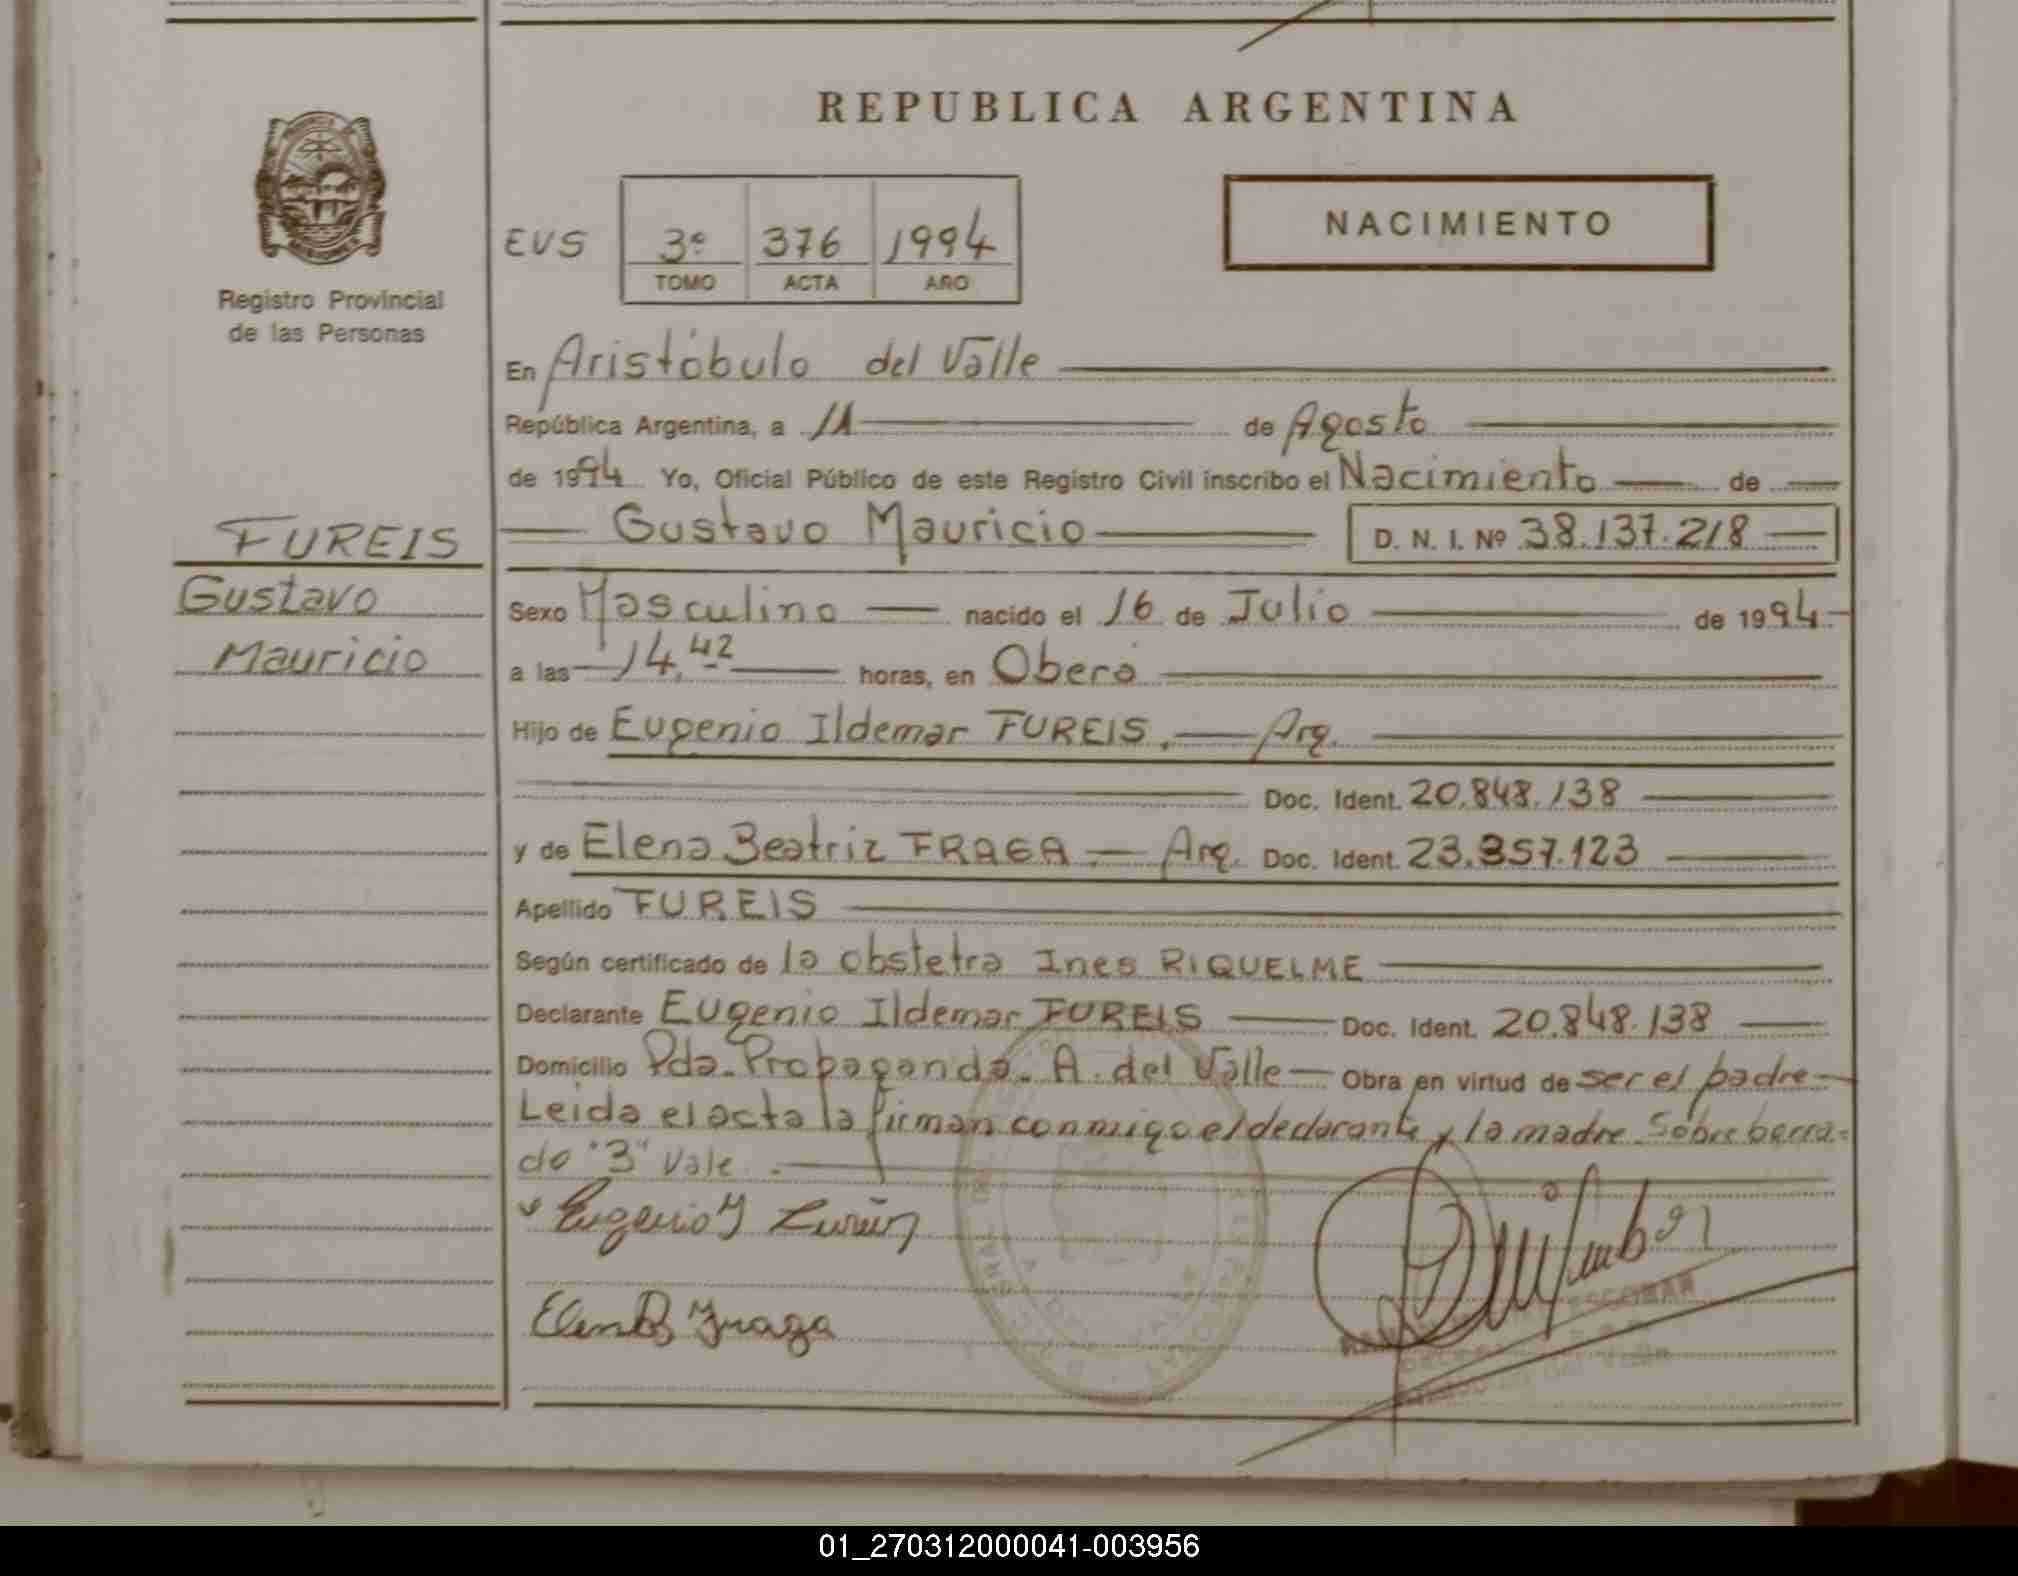 REPUBLICA ARGENTINA
NACIMIENTO
EVS 3º 376 1994
TOMO ACTA AÑO
Registro Provincial
de las Personas
En Aristóbulo del Valle
República Argentina, a 11 de Agosto
de 1994 Yo, Oficial Público de este Registro Civil inscribo el Nacimiento de
FUREIS
Gustavo
Mauricio
Gustavo Mauricio D. N. I. Nº 38.137.218
Sexo Masculino nacido el 16 de Julio de 1994
a las 14,42 horas, en Oberá
Hijo de Eugenio Ildemar FUREIS. Arg.
Doc. Ident. 20.848.138
y de Elena Beatriz FRAGA Arg. Doc. Ident. 23.357.123
Apellido FUREIS
Según certificado de la obstetra Ines RIQUELME
Declarante Eugenio Ildemar FUREIS Doc. Ident. 20.848.138
Domicilio Pda. Propaganda. A. del Valle Obra en virtud de ser el padre
Leida el acta la firman conmigo el declarante y la madre. Sobre borra=
do "3" Vale.
Eugenio
Elena B Fraga
ESCOBAR
del Valle
01_270312000041-003956